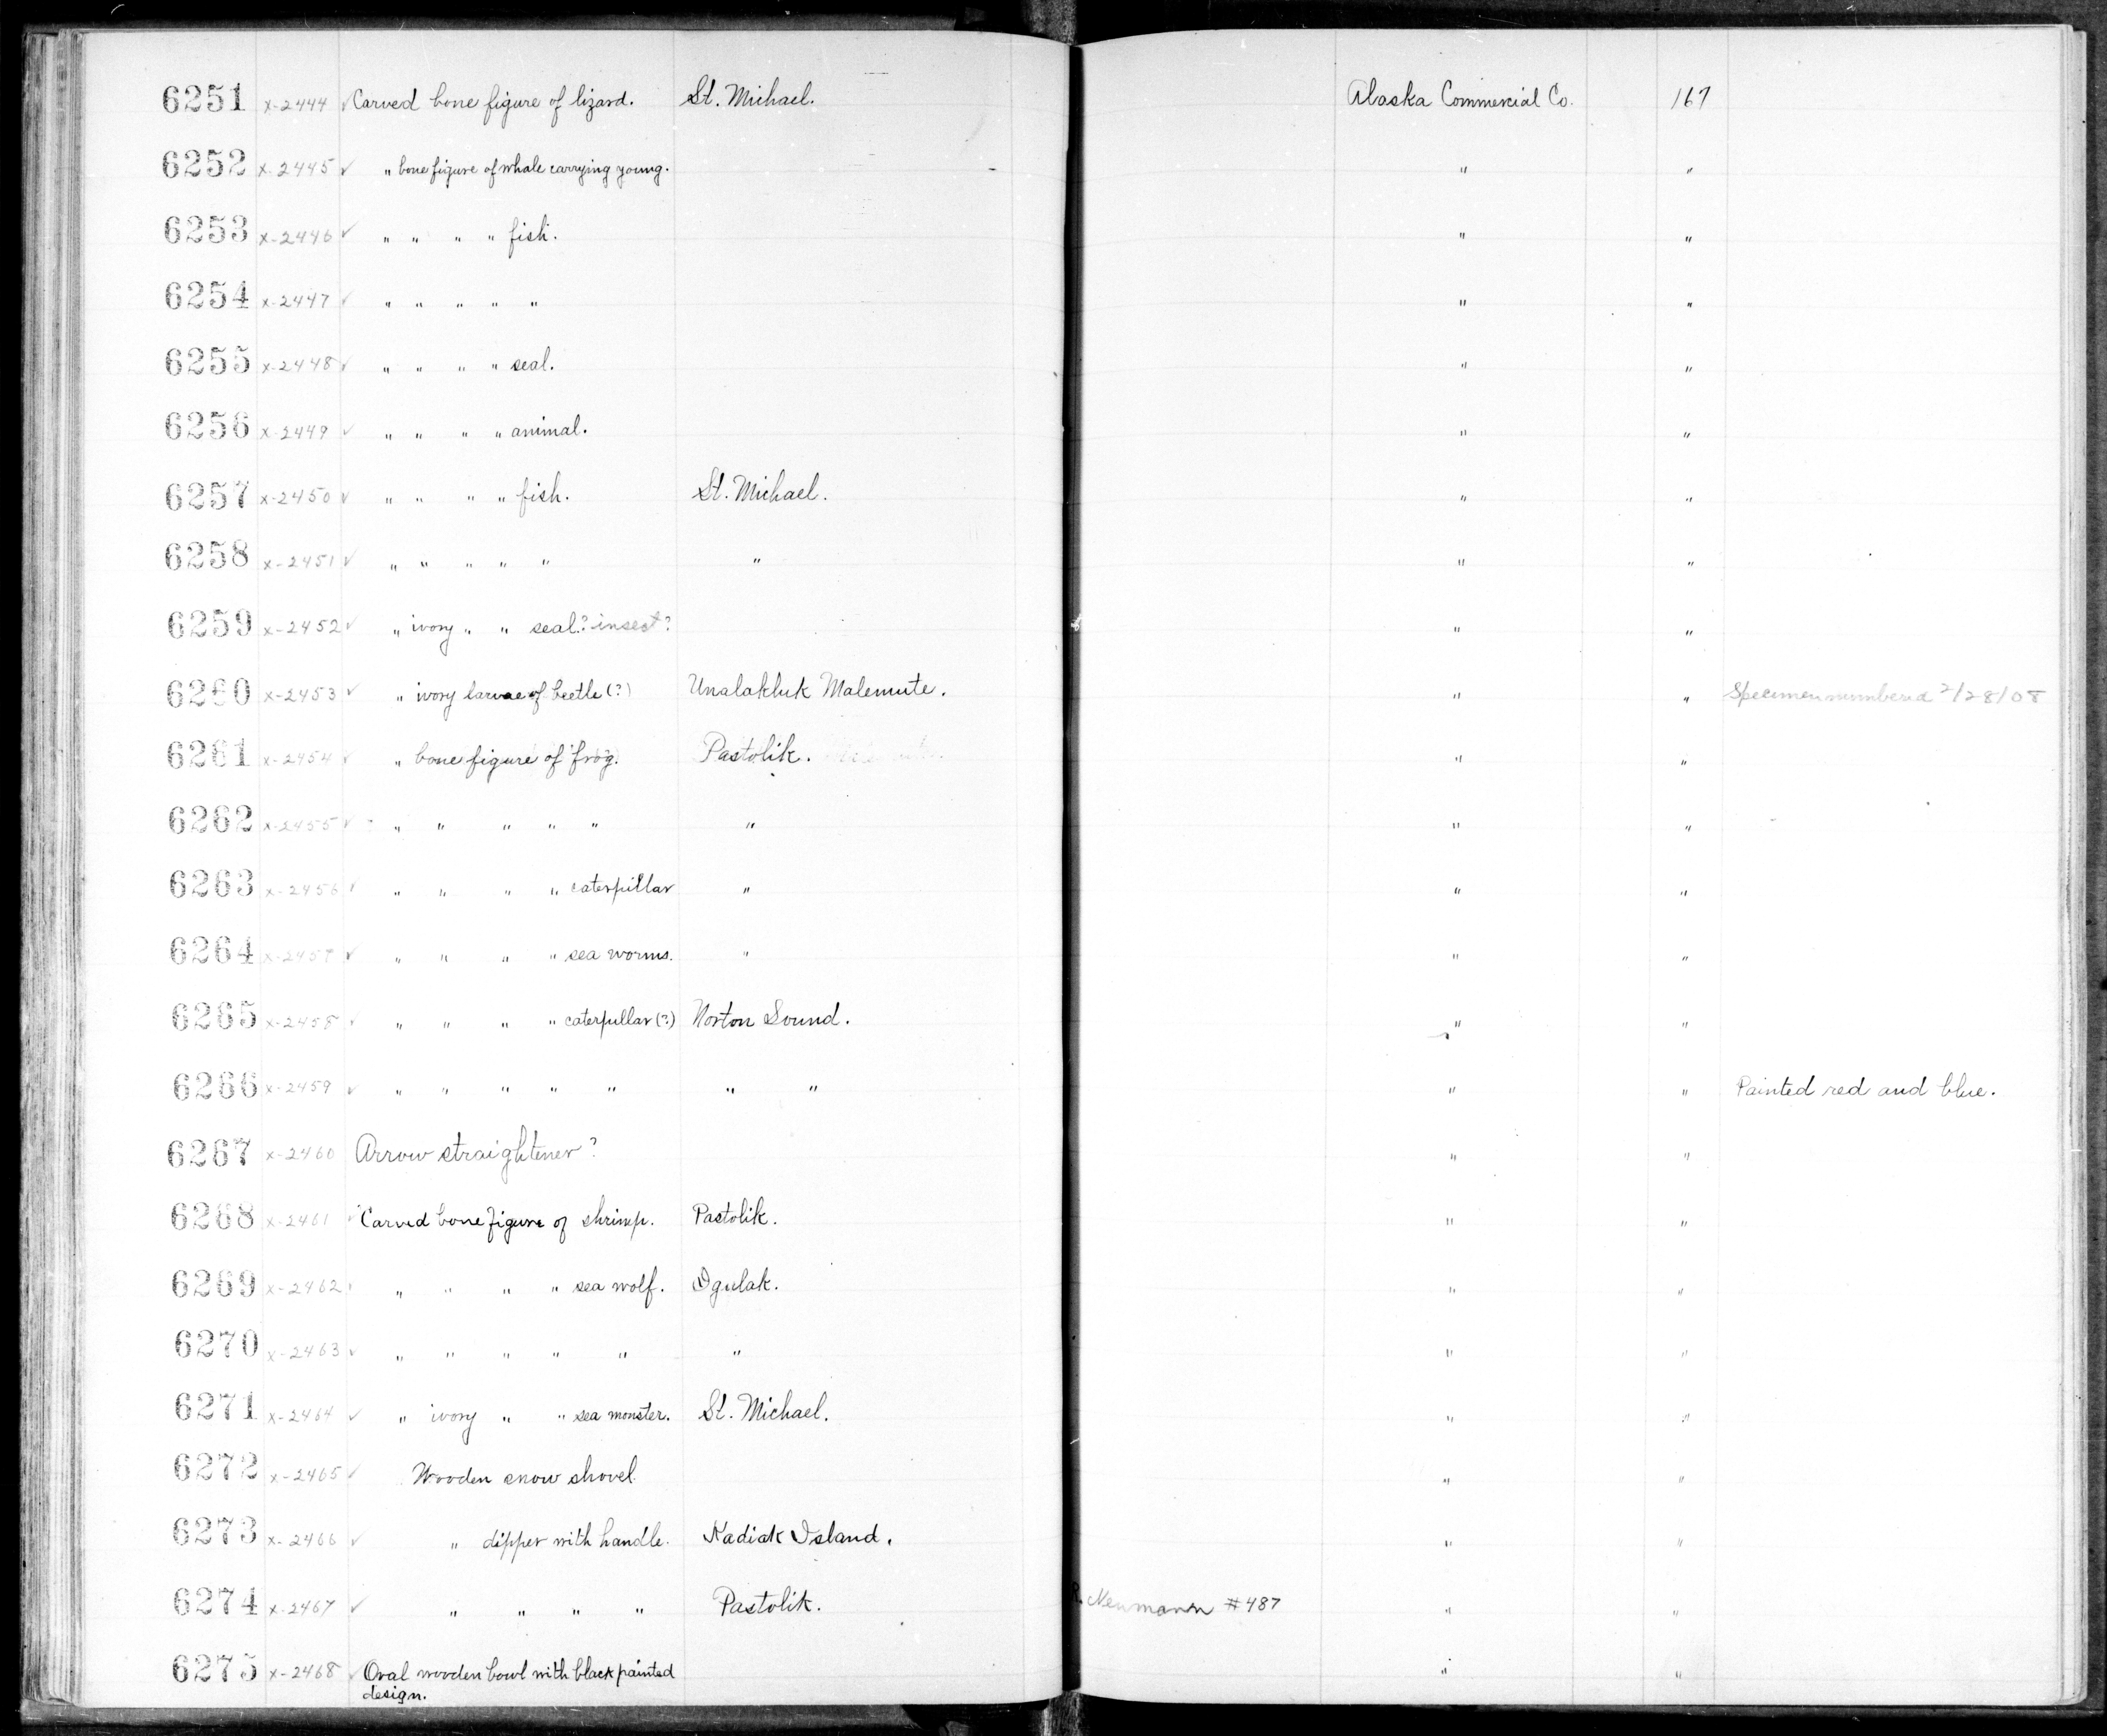 6251 x-2444 ✓ Carved bone figure of lizard. St. Michael. Alaska Commercial Co. 167
6252 x-2445 ✓ " bone figure of whale carrying young. " "
6253 x-2446 ✓ " " " " fish. " "
6254 x-2447 ✓ " " " " " " "
6255 x-2448 ✓ " " " " seal. " "
6256 x-2449 ✓ " " " " animal. " "
6257 x-2450 ✓ " " " " fish. St. Michael. " "
6258 x-2451 ✓ " " " " " " " "
6259 x-2452 ✓ " ivory " " seal? insect? " "
6260 x-2453 ✓ " ivory larvae of beetle (?) Unalakluk Malemute. " " Specimen numbered 2/28/08
6261 x-2454 ✓ " bone figure of frog. Pastolik. " "
6262 x-2455 ✓ " " " " " " " "
6263 x-2456 ✓ " " " " caterpillar " " "
6264 x-2457 ✓ " " " " sea worms. " " "
6265 x-2458 ✓ " " " " caterpillar (?) Norton Sound. " "
6266 x-2459 ✓ " " " " " " " " " Painted red and blue.
6267 x-2460 Arrow straightener? " "
6268 x-2461 ✓ Carved bone figure of shrimp. Pastolik. " "
6269 x-2462 ✓ " " " " sea wolf. Igulak. " "
6270 x-2463 ✓ " " " " " " " "
6271 x-2464 ✓ " ivory " " sea monster. St. Michael. " "
6272 x-2465 ✓ Wooden snow shovel " "
6273 x-2466 ✓ " dipper with handle. Kadiak Island. " "
6274 x-2467 ✓ " " " " Pastolik. R. Neumann #487 " "
6275 x-2468 ✓ Oval wooden bowl with black painted " "
design.